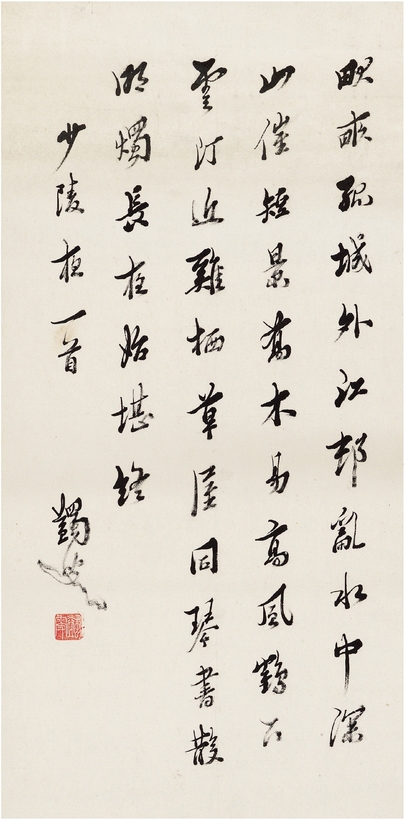 畎畝孤城外江邨亂水中深
山催短景喬木易高風鶴下
雲汀近雞栖草屋同琴書散
明燭長夜始堪終
少陵夜一首 蠲叟